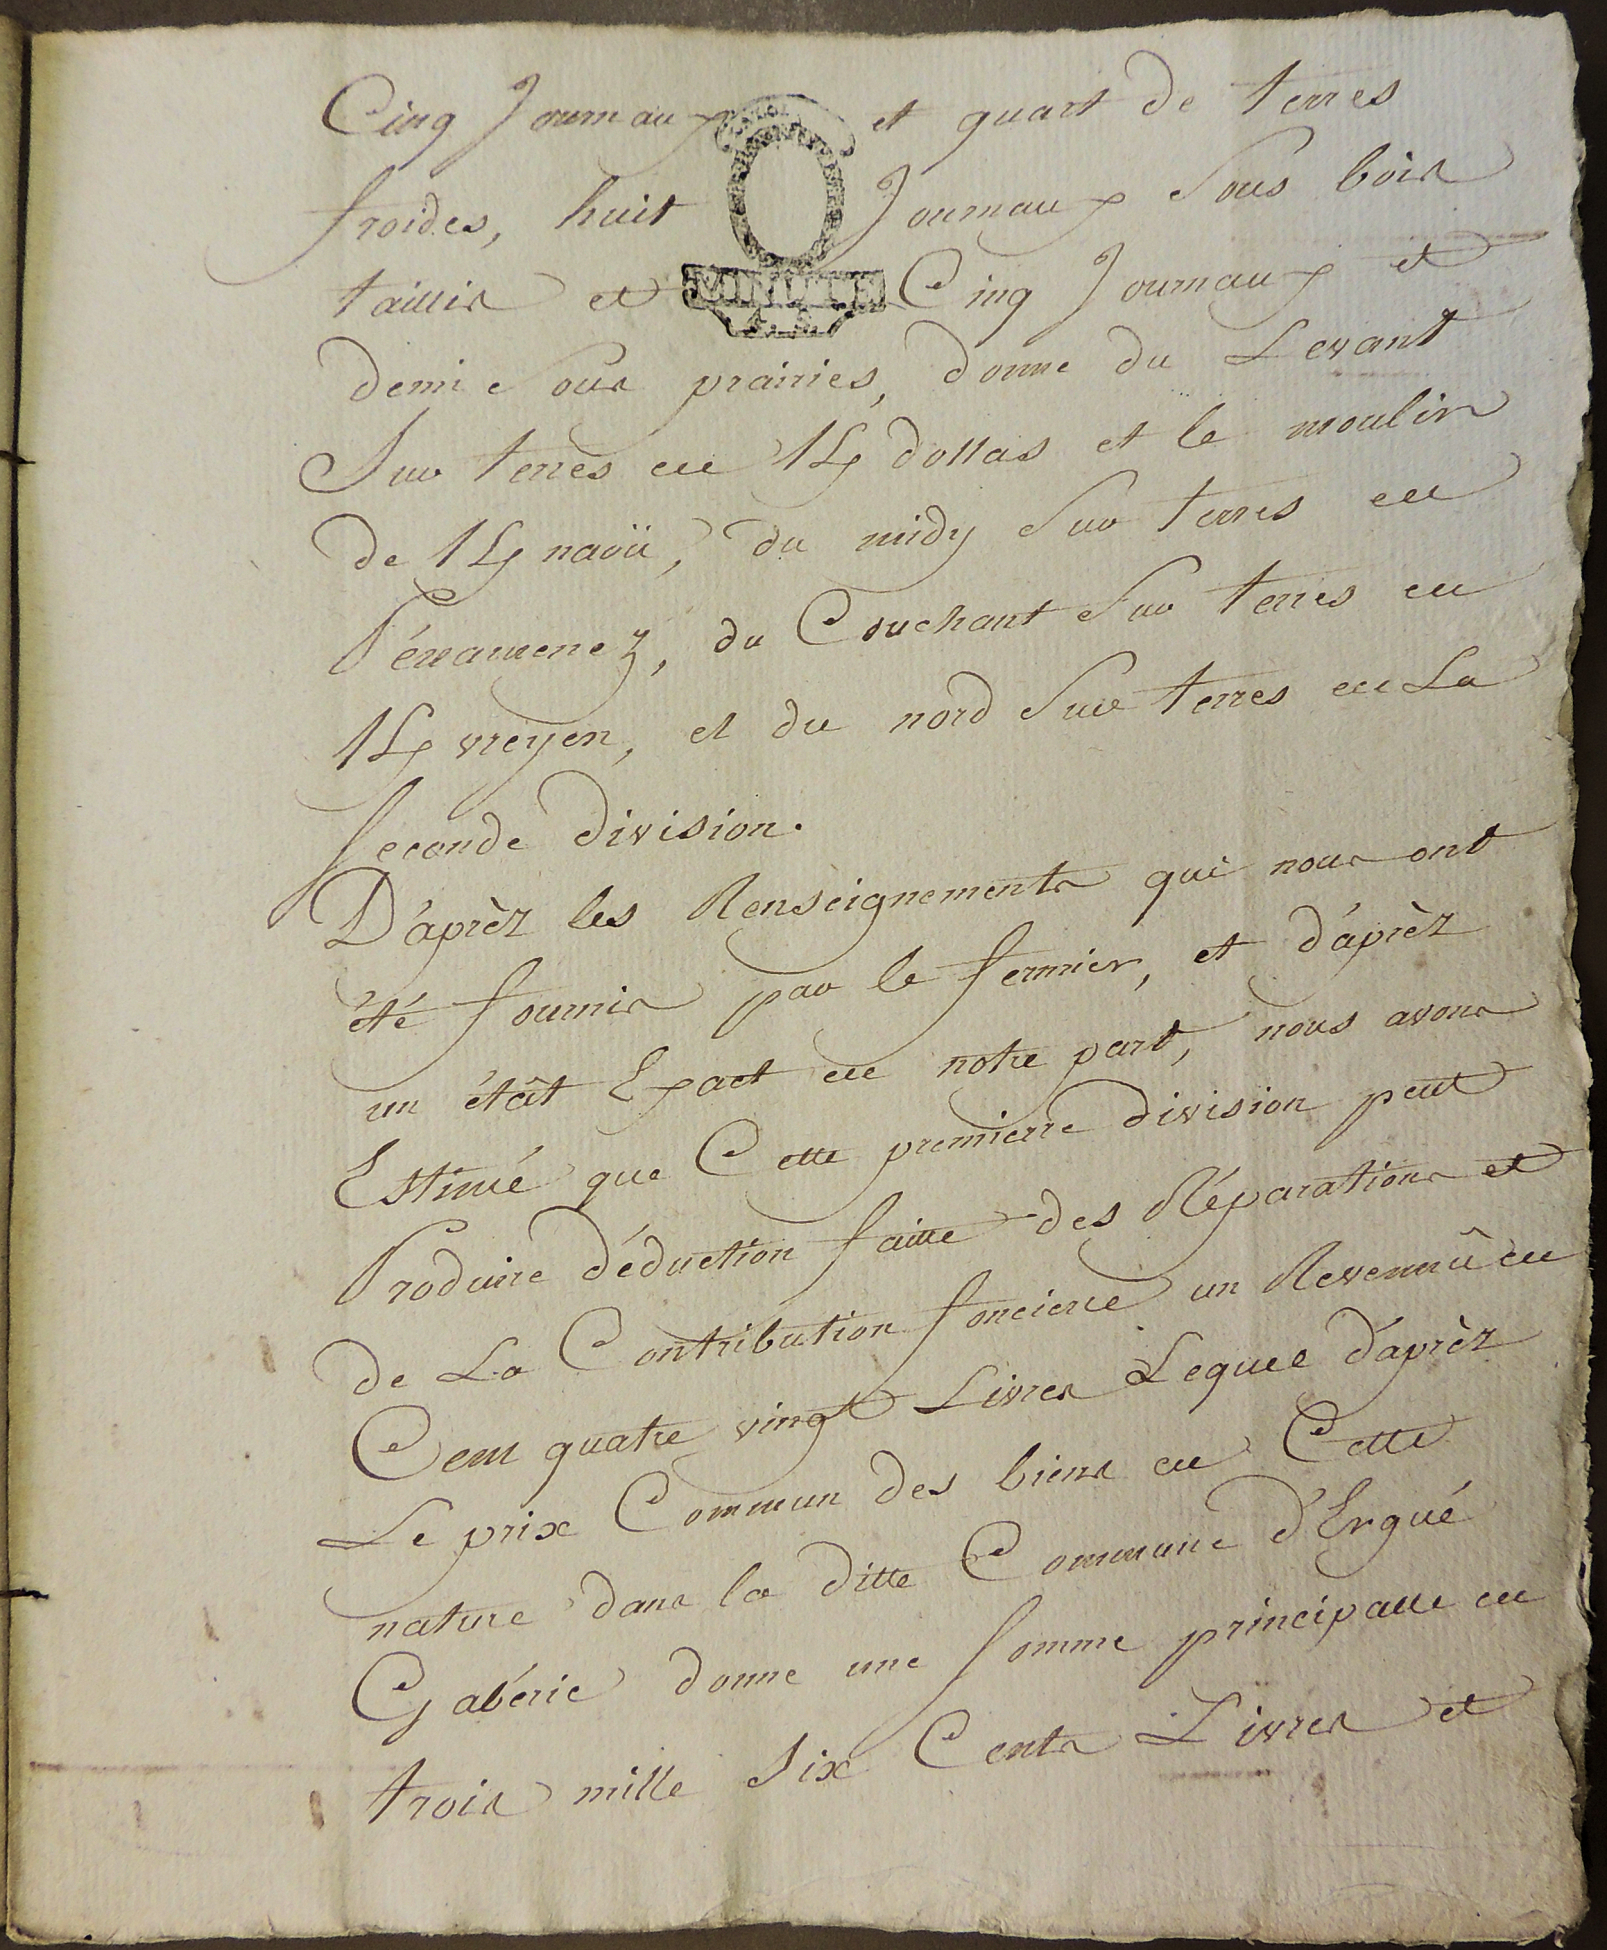 Cinq Journaux et quart de terres
froides, huit Journaux Sous bois
taillis et Cinq Journaux et
MINUTE
4. S.
demi Sous prairies, donne du Levant
Sur terres de K/dollas et le moulin
de K/naoü, du midy Sur terres de
Pénnamenez, du Couchant Sur terres de
K/vreyen, et du nord Sur terres de La
Seconde division.
D'après les Renseignements qui nous ont
été fournis par le fermier, et d'après
un étât Exact de notre part, nous avons
Estimé que Cette premierre division peut
Produire déduction faitte des Réparations et
de La Contribution fonciere un Revennû de
Cent quatre vingt Livres Lequel d'après
Le prix Commun des biens de Cette
nature dans la ditte Commune d'Ergué
Gabéric donne une Somme principalle de
trois mille Six Cents Livres et